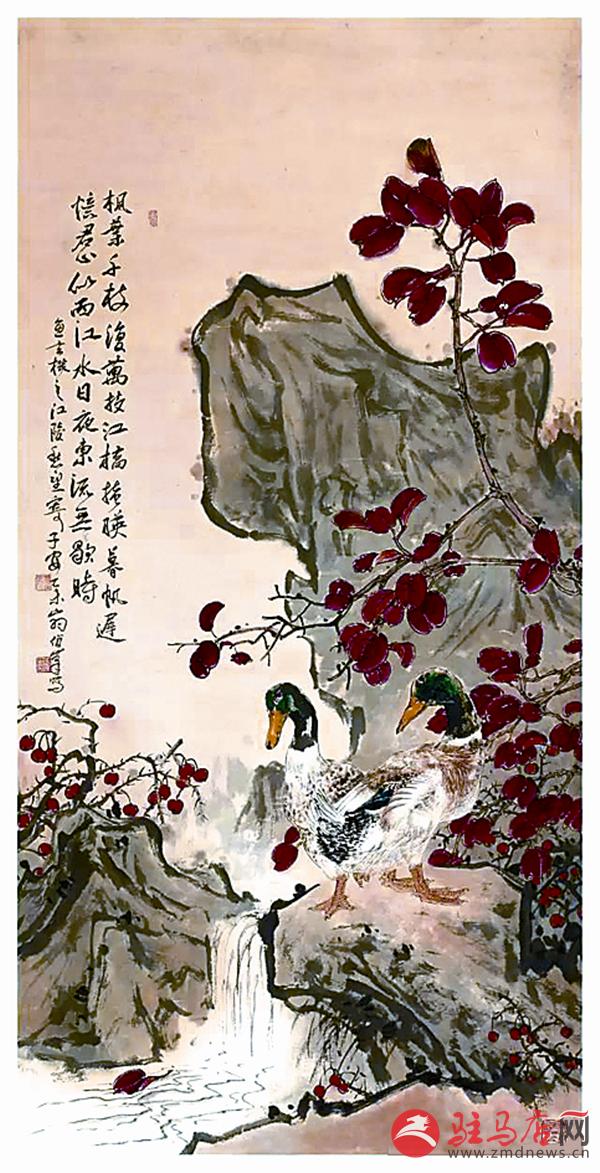 枫葉千枝復萬枝江橋掩暎暮帆遲
憶君心似西江水日夜東流无歇時
魚玄機之江陵愁望寄子安
驻马店网
www.zmdnews.cn